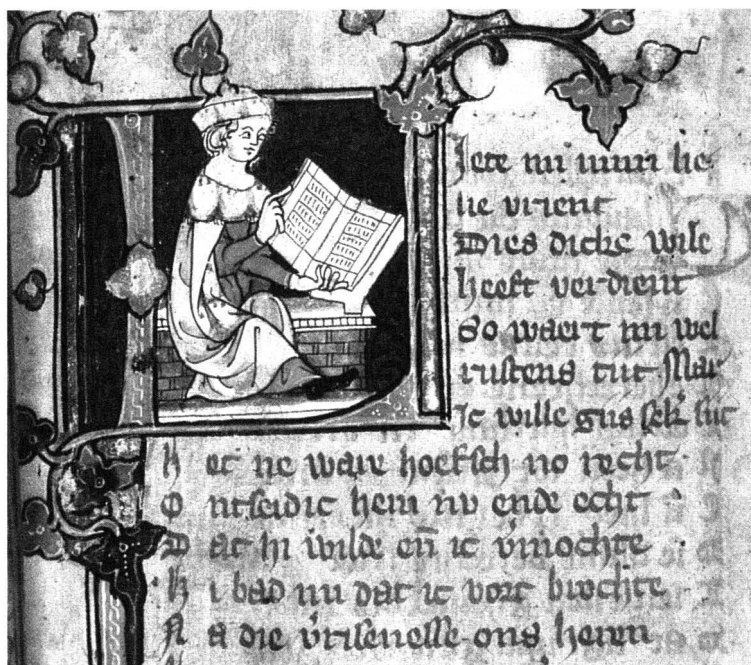 Liete mi miin lie
ue vrient
Dies dicke wile
heeft verdient
So waert mi wel
rustens tiit Mar
Ic wille gus sek' siit
H et ne ware hoefsch no recht
O ntseidic hem nv ende echt
D at hi wilde en̄ ic v'mochte
H i bad mi dat ic vort brochte
N a die v'risenesse ons heren